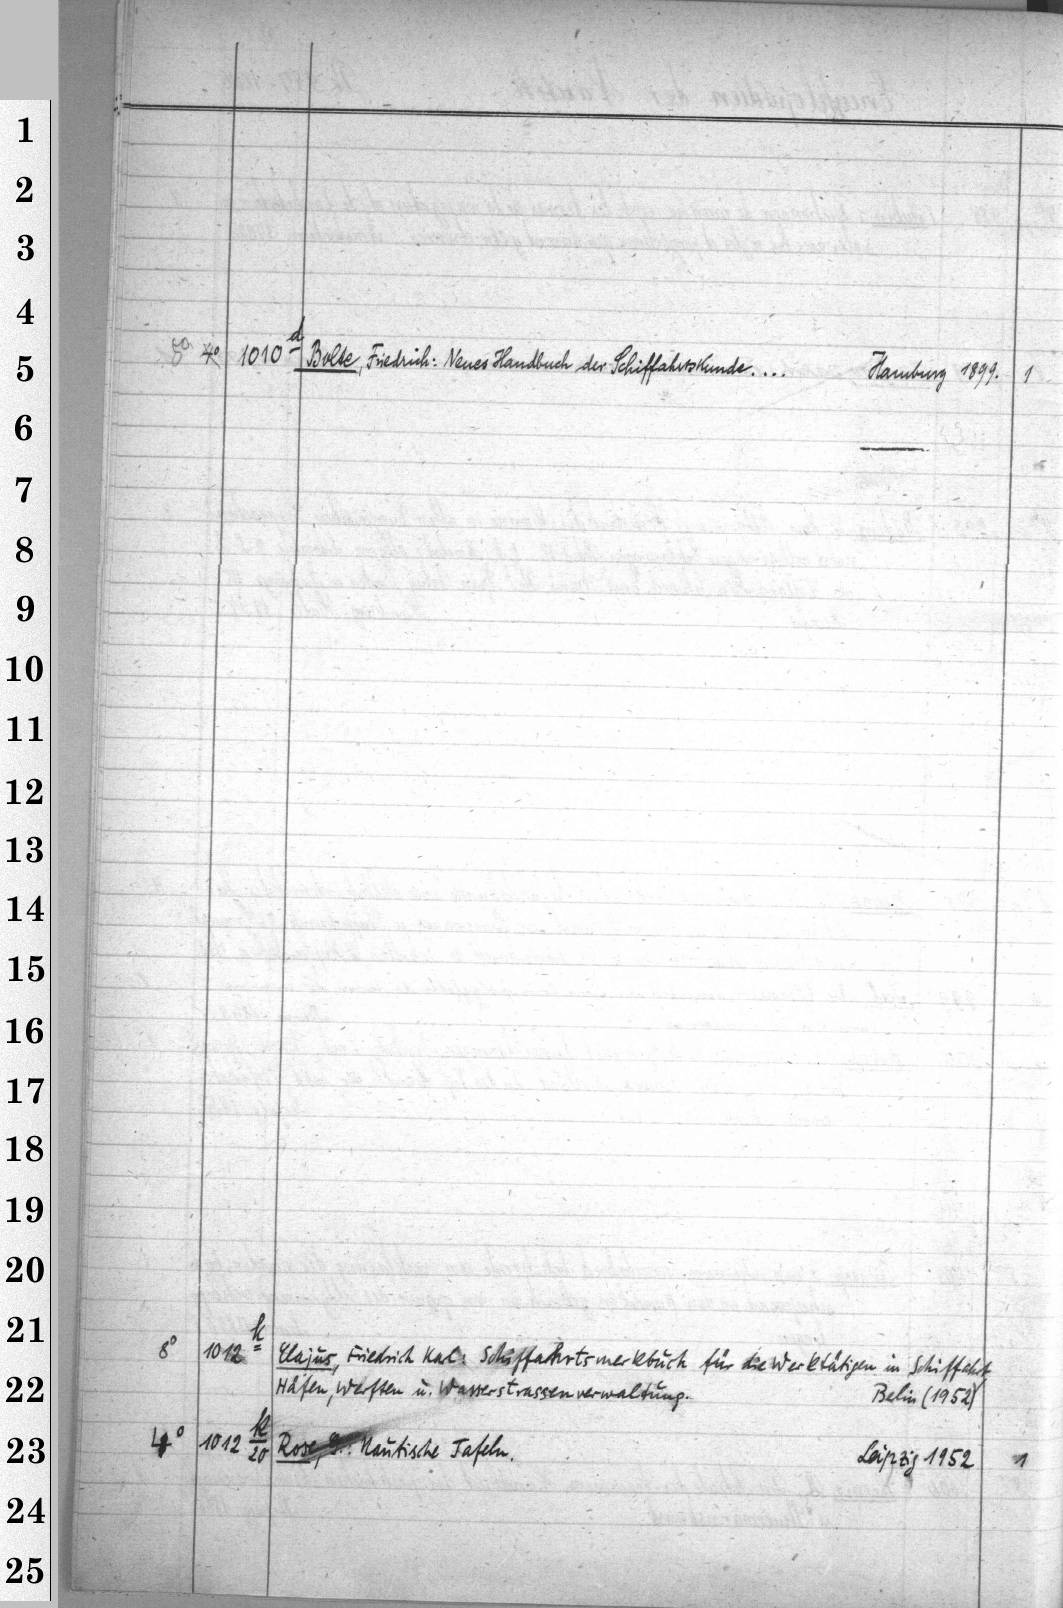 1
2
3
4
8° 4° 1010 d Bolte, Friedrich: Neues Handbuch der Schiffahrtskunde.... Hamburg 1899. 1
5
6
7
8
9
10
11
12
13
14
15
16
17
18
19
20
21
8° 1012 k Clajus, Friedrich Karl: Schiffahrtsmerkbuch für die Werktätigen in Schiffahrt
22 Häfen, Werften u. Wasserstrassenverwaltung. Belin (1952)
23 4° 1012 k/20 Rose, Nautische Tafeln. Leipzig 1952 1
24
25